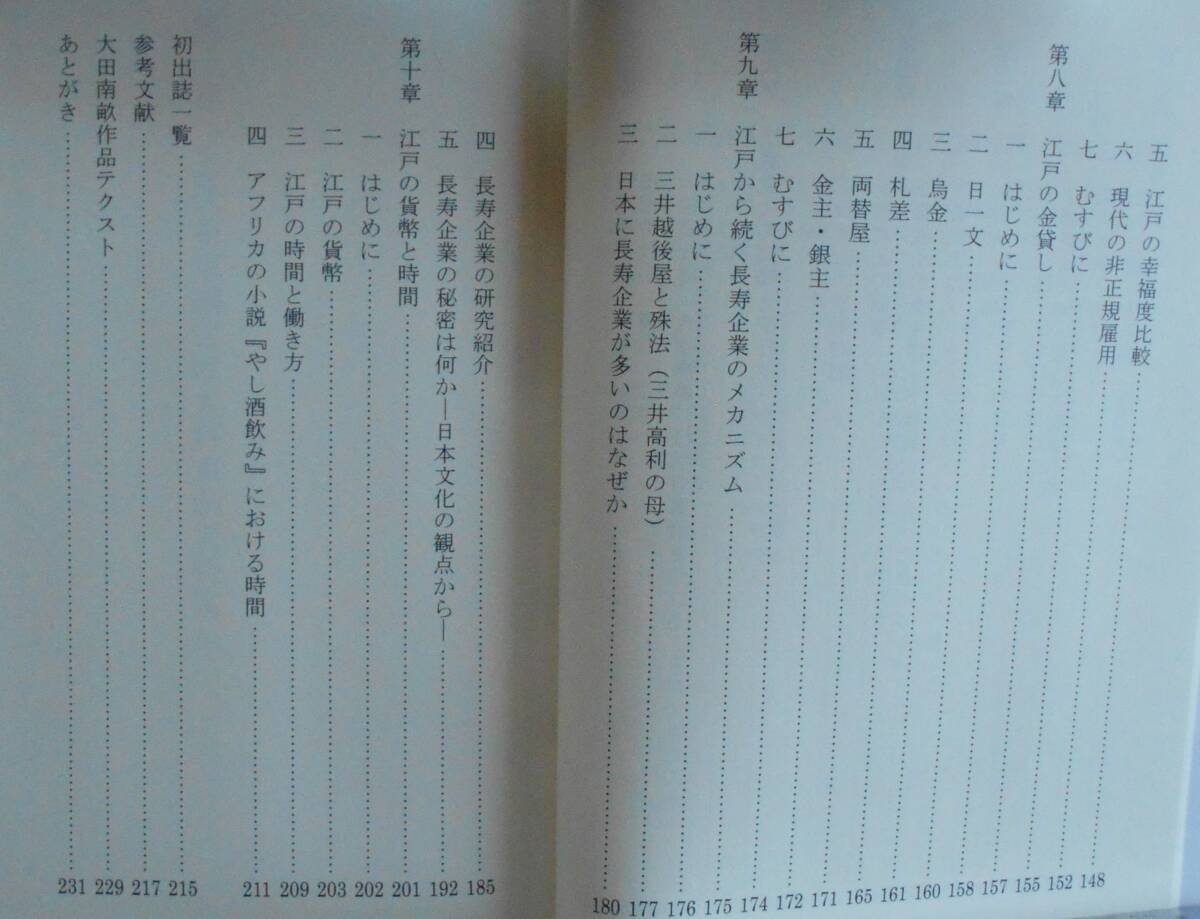 五 江戸の幸福度比較 148
六 現代の非正規雇用 152
七 むすびに 155
第八章 江戸の金貸し 157
一 はじめに 158
二 日一文 160
三 烏金 161
四 札差 165
五 両替屋 171
六 金主・銀主 172
七 むすびに 174
第九章 江戸から続く長寿企業のメカニズム 175
一 はじめに 176
二 三井越後屋と殊法（三井高利の母） 177
三 日本に長寿企業が多いのはなぜか 180
四 長寿企業の研究紹介 185
五 長寿企業の秘密は何か―日本文化の観点から― 192
第十章 江戸の貨幣と時間 201
一 はじめに 202
二 江戸の貨幣 203
三 江戸の時間と働き方 209
四 アフリカの小説『やし酒飲み』における時間 211
初出誌一覧 215
参考文献 217
大田南畝作品テクスト 229
あとがき 231